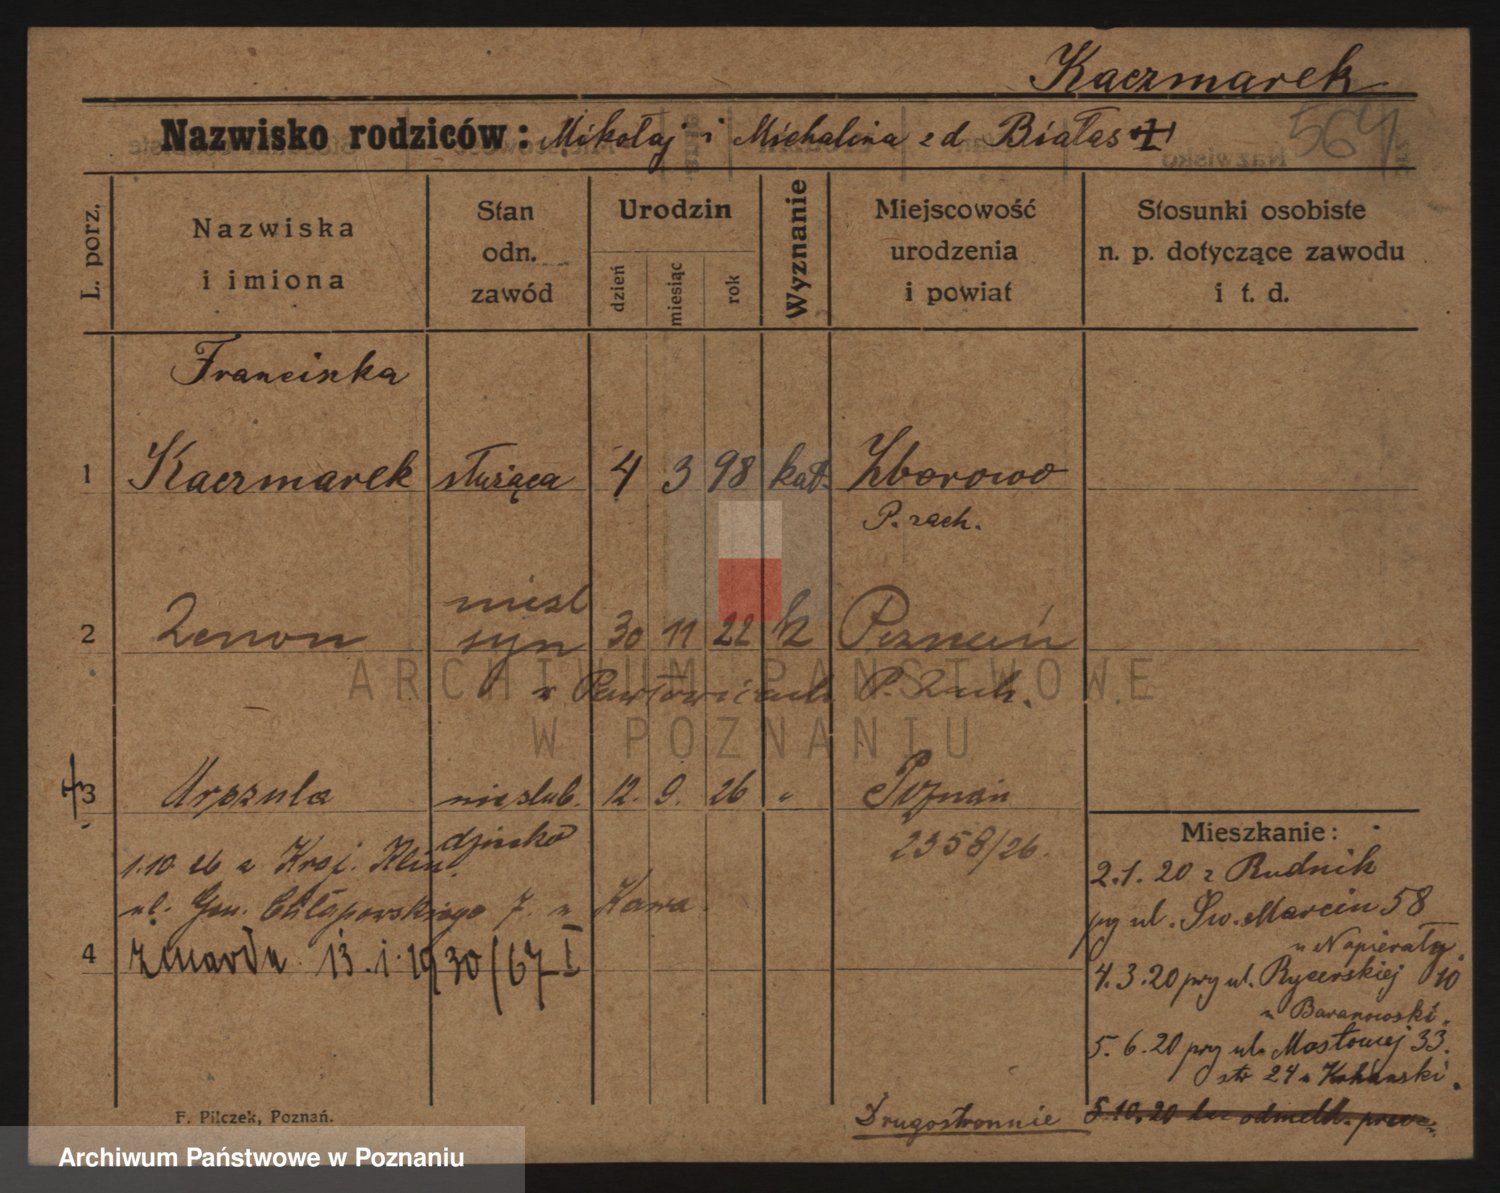 Kaczmarek
Nazwisko rodziców: Mikołaj i Michalina z d Białas
564
L. porz.
Nazwiska i imiona
Stan odn. zawód
Urodzin
dzień
miesiąc
rok
Wyznanie
Miejscowość urodzenia i powiat
Stosunki osobiste n. p. dotyczące zawodu i t. d.
Franciszka
1 Kaczmarek służąca 4 3 98 kat. Zborowo
P. zach.
nieśl
2 Zenon syn 30 11 22 k Poznań
w Pawłowicach P. Zach.
3 Urszula nieślub. 12. 9. 26 " Poznań
dziecko 2358/26.
1.10 26
ul. Gen. Chłapowskiego 7. u Kawa
4 zmarła 13.1.1930/67 I
Mieszkanie:
2.1.20 z Rudnik
przy ul. Św. Marcin 58
u Napierały
4.3.20 przy ul. Rycerskiej 10
u Baranowski.
5.6.20 przy ul. Mostowej 33.
24 u
5.10.20 bez odmeld.
Drugostronnie
F. Pilczek, Poznań.
ARCHIWUM PAŃSTWOWE
W POZNANIU
Archiwum Państwowe w Poznaniu